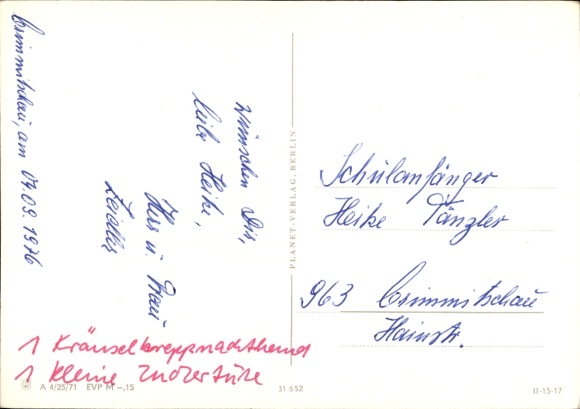 Crimmitschau, am 04.09.1976
wünschen Dir,
liebe Heike,
Herr u. Frau
Zeidler
1 Kräuselkreppnachthemd
1 kleine Zuckertüte
A 4/25/71 EVP M –.15
31 652
PLANET-VERLAG, BERLIN
Schulanfänger
Heike Tänzler
963 Crimmitschau
Hainstr.
II-15-17